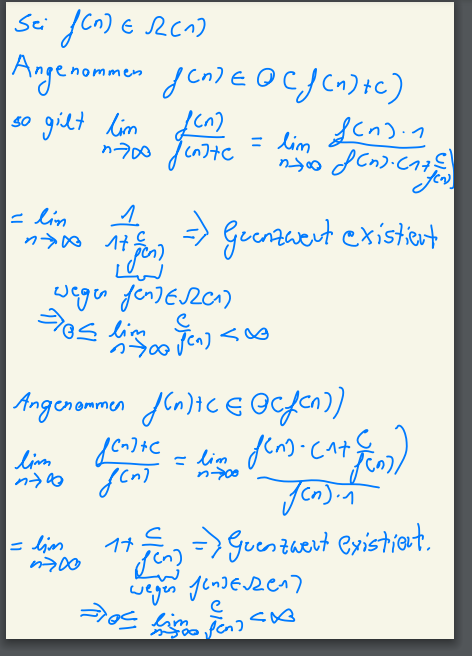 Sei f(n) ∈ Ω(n)
Angenommen f(n) ∈ Θ(f(n)+c)
so gilt lim n→∞ f(n)/(f(n)+c) = lim n→∞ (f(n)·1)/(f(n)·(1+c/f(n)
= lim n→∞ 1/(1+c/f(n)) => Grenzwert existiert
wegen f(n)∈Ω(n)
=> 0 ≤ lim n→∞ c/f(n) < ∞
Angenommen f(n)+c ∈ Θ(f(n))
lim n→∞ (f(n)+c)/f(n) = lim n→∞ (f(n)·(1+c/f(n)))/(f(n)·1)
= lim n→∞ 1+c/f(n) => Grenzwert existiert.
wegen f(n)∈Ω(n)
=> 0 ≤ lim n→∞ c/f(n) < ∞